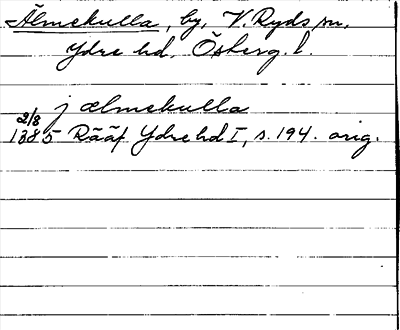 Älmekulla, by, V. Ryds sn,
Ydre hd, Österg. l.
j ælmekulla
2/8
1385 Rääf Ydre hd I, s. 194. orig.